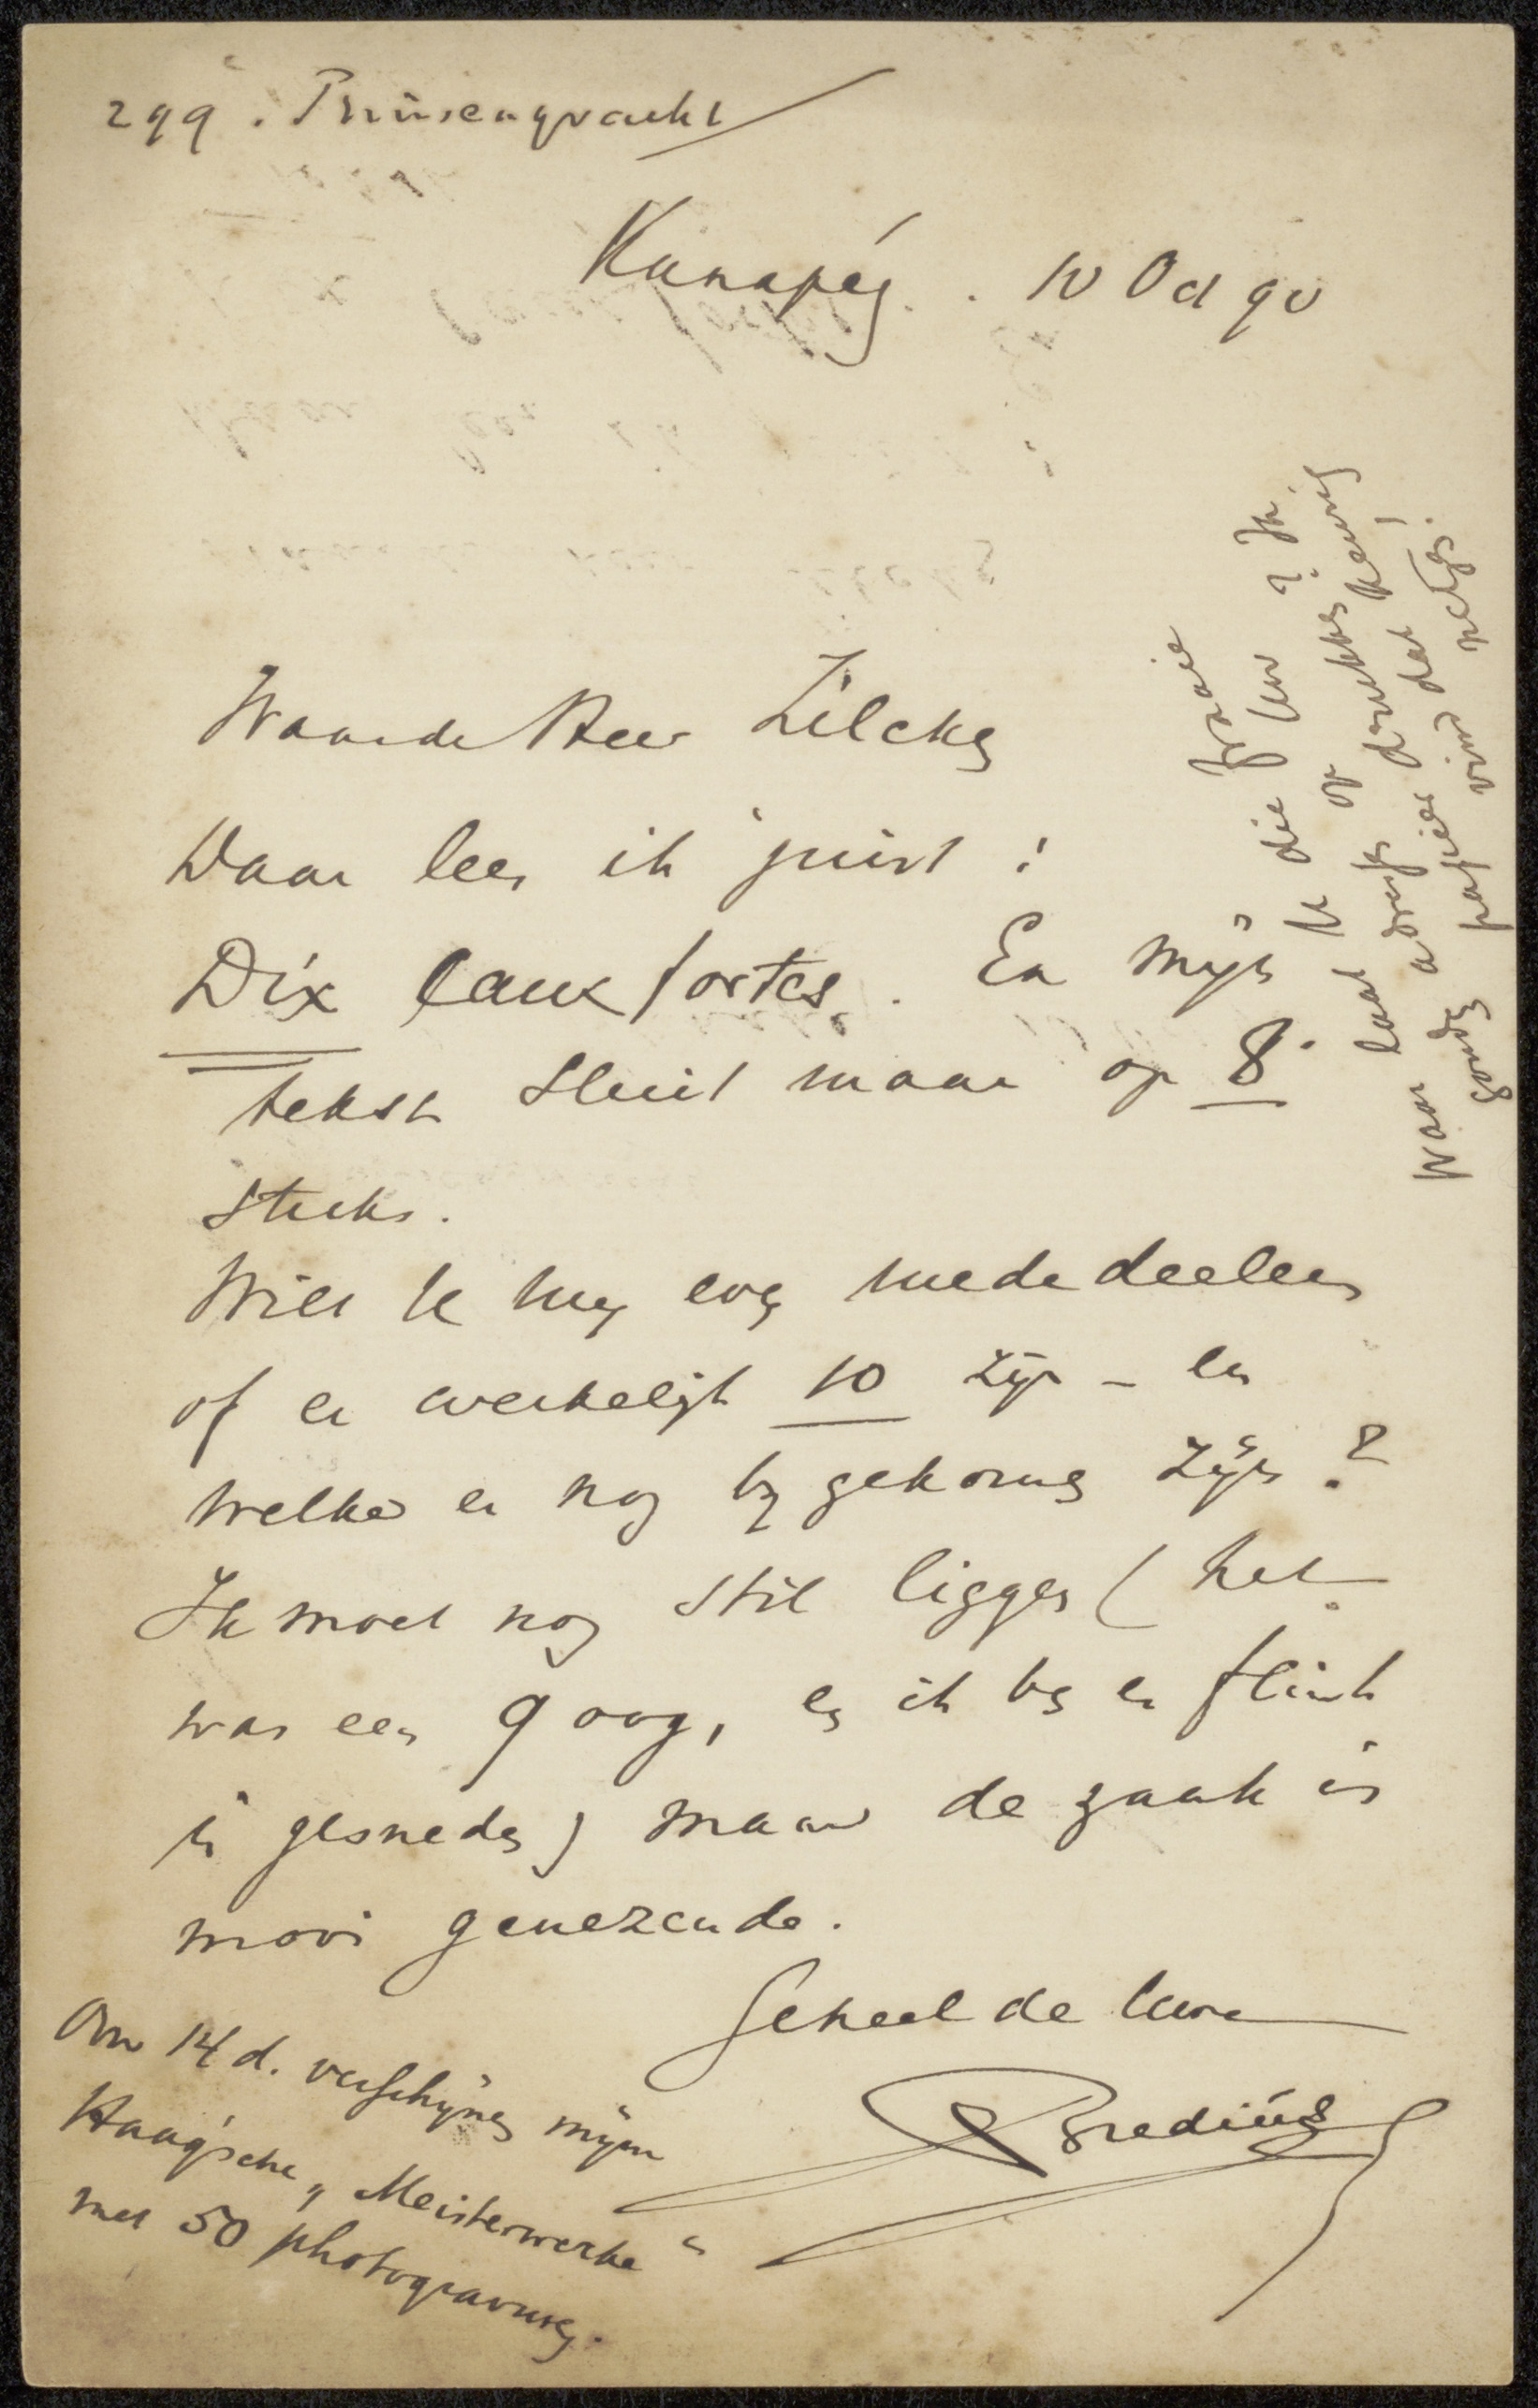 299. Prinsengracht
Kanapé . 10 Oct 90
Waarde Heer Zilcken
Daar lees ik juist :
Dix eaux fortes. En mijn
tekst sluit maar op 8
stuks.
Wilt U my even mededeelen
of er werkelijk 10 zijn – en
welke er nog bygekomen zijn ?
Ik moet nog stil liggen ( het
was een 9 oog, en ik ben er flink
in gesneden ) maar de zaak is
mooi genezende.
Geheel de Uwe
A Bredius
Om 14 d. verschijnen mijn
Haagsche „ Meisterwerke “
met 50 photogravures.
Waar laat U die fraaie
adresjes op drukken ? Ik
goudpapier vind dat keurig
netjes.